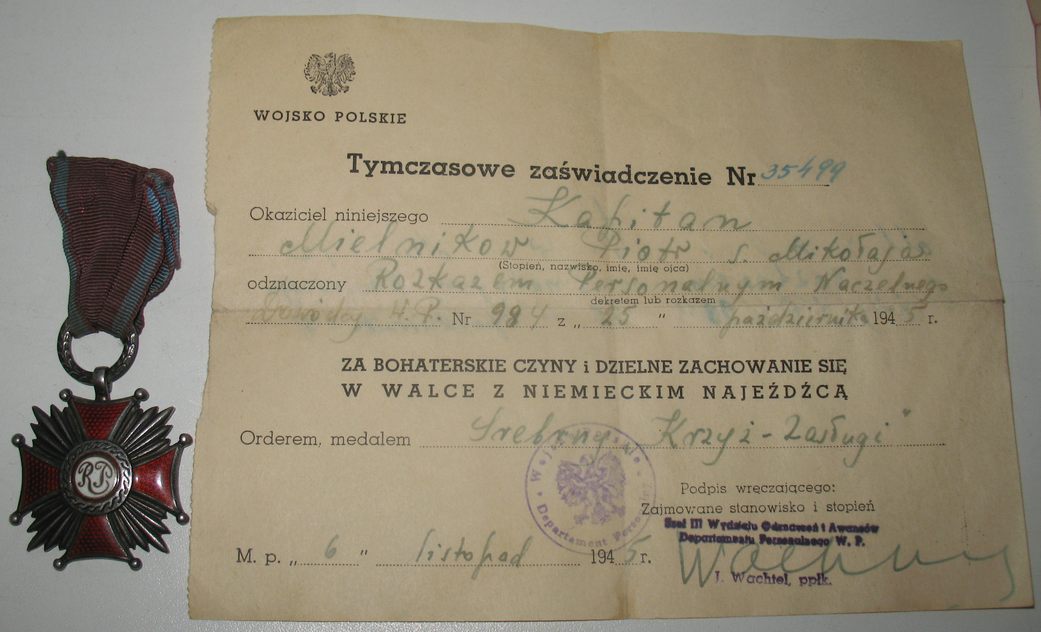 WOJSKO POLSKIE
Tymczasowe zaświadczenie Nr 35499
Okaziciel niniejszego Kapitan
Mielnikow Piotr s. Mikołaja
(Stopień, nazwisko, imię, imię ojca)
odznaczony Rozkazem Personalnym Naczelnego
dekretem lub rozkazem
Dowódcy W.P. Nr 984 z „ 25 " października 1945 r.
ZA BOHATERSKIE CZYNY i DZIELNE ZACHOWANIE SIĘ
W WALCE Z NIEMIECKIM NAJEŹDŹCĄ
Orderem, medalem Srebrny Krzyż-Zasługi"
Podpis wręczającego:
Zajmowane stanowisko i stopień
Szef III Wydziału Odznaczeń i Awansów
Departamentu Personalnego W. P.
M. p. „ 6 " listopad 1945 r.
J. Wachtel, ppłk.
Wojsko Polskie
Departament Personalny
RP